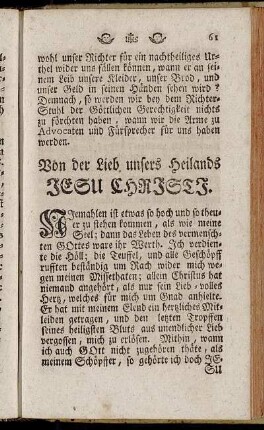 61
wohl unser Richter für ein nachtheiliges Ur-
thel wider uns fällen können, wann er an sei-
nem Leib unsere Kleider, unser Brod, und
unser Geld in seinen Händen sehen wird?
Demnach, so werden wir bey dem Richter-
Stuhl der Göttlichen Gerechtigkeit nichts
zu förchten haben, wann wir die Arme zu
Advocaten und Fürsprecher für uns haben
werden.
Von der Lieb unsers Heilands
JESU CHRISTI.
NJemahlen ist etwas so hoch und so theu-
er zu stehen kommen, als wie meine
Seel; dann das Leben des vermensch-
ten GOttes ware ihr Werth. Jch verdien-
te die Höll; die Teuffel, und alle Geschöpff
rufften beständig um Rach wider mich we-
gen meinen Missethaten; allein Christus hat
niemand angehört, als nur sein Lieb-volles
Hertz, welches für mich um Gnad anhielte.
Er hat mit meinem Elend ein hertzliches Mit-
leiden getragen, und den letzten Tropffen
seines heiligsten Bluts aus unendlicher Lieb
vergossen, mich zu erlösen. Mithin, wann
ich auch GOtt nicht zugehören thäte, als
meinem Schöpffer, so gehörte ich doch JE-
SU